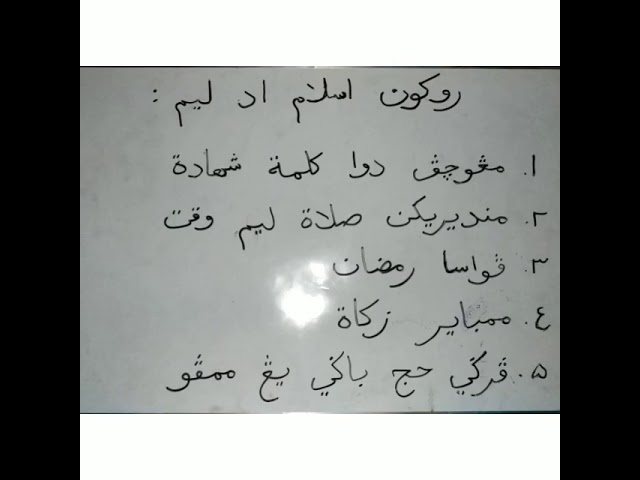 روكون اسلام اد ليم :
١. مڠوچڤ دوا كلمة شهادة
٢. منديريكن صلاة ليم وقت
٣. ڤواسا رمضان
٤. ممباير زكاة
۵. ڤرݢي حج باݢي يڠ ممڤو